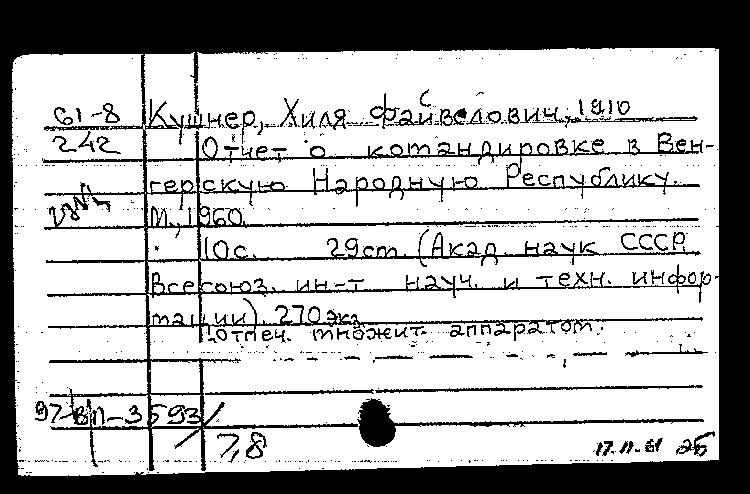 61-8 Кушнер, Хиля Файвелович, 1910
242 Отчет о командировке в Вен-
герскую Народную Республику.
М., 1960.
10с. 29см. (Акад. наук СССР.
Всесоюз. ин-т науч. и техн. инфор-
мации). 270 экз.
Отпеч. множит. аппаратом.
3593
7,8
17.11.61 25